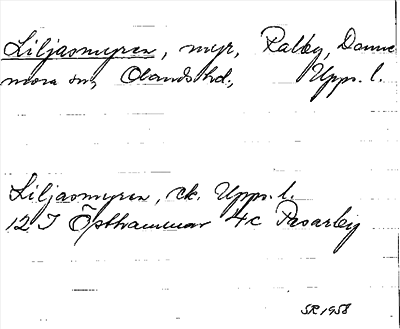 Liljasmyren, myr, Ralby, Danne
mora sn, Olands hd., Upps. l.
Liljasmyren, ek. Upps. l.
12 I Östhammar 4c Pasarby
SR 1958